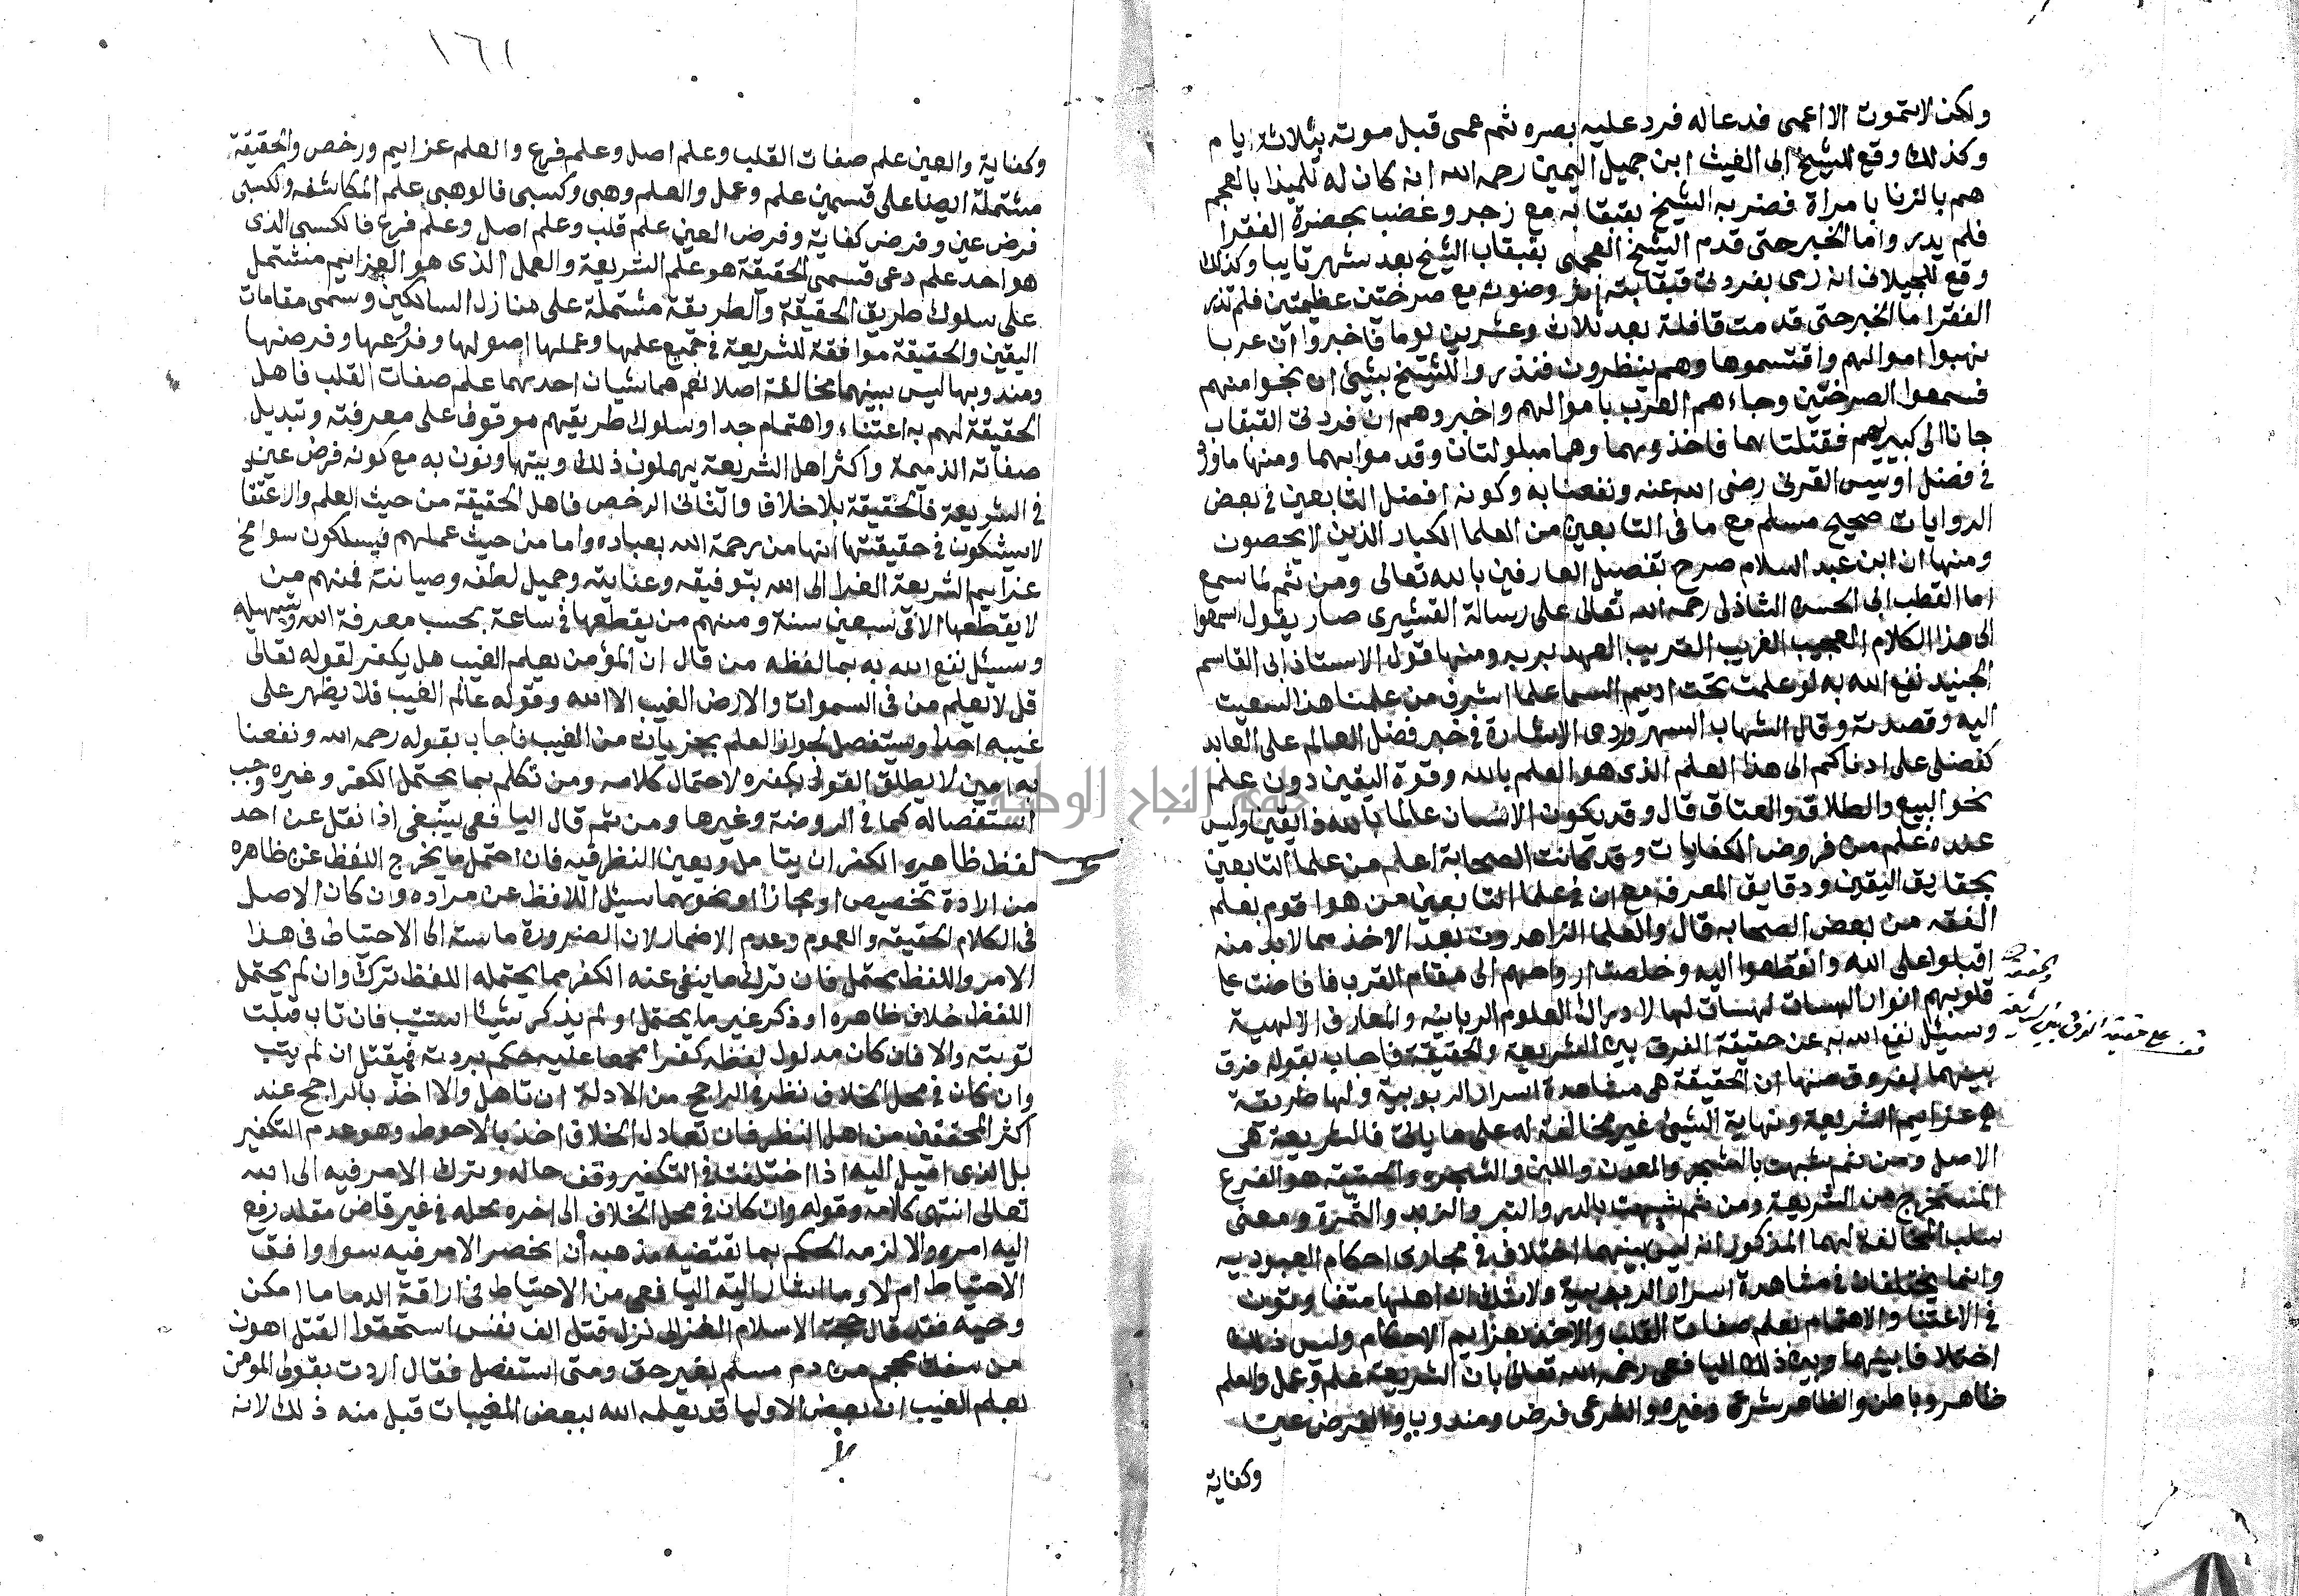 ولكن لا تموت الا اعمى فدعا له فرد عليه بصره ثم عمى قبل موته بثلاثة ايام
وكذلك وقع للشيخ ابى الغيث ابن جميل اليمين رحمه الله انه كان له تلميذا بالعجم
هم بالزنا بامراة فضربه الشيخ بقبقابه مع زجر وغضب بحضرة الفقرا
فلم يدروا ما الخبر حتى قدم الشيخ العجمى بقبقاب الشيخ بعد شهر تايبا وكذلك
وقع للجيلانى انه رمى بفردتى قبقابته اثر وضوئه مع صرختين عظيمتين فلم تدر
الفقرا ما الخبر حتى قدمت قافلة بعد ثلاث وعشرين يوما فاخبروا ان عربا
نهبوا اموالهم واقتسموها وهم ينظرون فنذروا للشيخ بشئ ان نجوا منهم
فسمعوا الصرختين وجاءهم العرب باموالهم واخبروهم ان فردتى القبقاب
جاتا الى كبيرهم فقتلتاهما فاخذوهما وهما مبلولتان وقدموا بهما ومنها ما ورد
فى فضل اويس القرنى رضى الله عنه ونفعنا به وكونه افضل التابعين فى بعض
الروايات صحيح مسلم مع ما فى التابعين من العلما الكبار الذين لا يحصون
ومنها ان ابن عبد السلام صرح بتفضيل العارفين بالله تعالى ومن ثم لما سمع
اما القطب ابى الحسن الشاذلى رحمه الله تعالى على رسالة القشيرى صار يقول اسمعوا
الى هذا الكلام العجيب الغريب القريب العهد بربه ومنها قول الاستاذ ابى القاسم
الجنيد نفع الله به لو علمت تحت اديم السما علما اشرف من علمنا هذا لسعيت
اليه وقصدته وقال الشهاب السهروردى الاشارة فى خبر فضل العالم على العابد
كفضلى على ادناكم الى هذا العلم الذى هو العلم بالله وقوة اليقين دون علم
نحو البيع والطلاق والعتاق قال وقد يكون الانسان عالما بالله ذا يقين وليس
عنده علم من فروض الكفايات وقد كانت الصحابة اعلم من علما التابعين
بحقايق اليقين ودقايق المعرفه مع ان فى علما التابعين من هو اقوم بعلم
الفقه من بعض الصحابه قال والعلما الزاهدون بعد الاخذ مما لابد منه
اقبلوا على الله وانقطعوا اليه وخلصت ارواحهم الى مقام القرب فافاضت على
قلوبهم انوار لادراك العلوم الربانيه والمعارف الالهية
وسئل نفع الله به عن حقيقة الفرق بين الشريعة والحقيقة فاجاب بقوله فرق
بينهما بفروق منها ان الحقيقة هى مشاهدة اسرار الربوبية ولها طريقة
هى عزايم الشريعة ونهاية الشئ غير مخالفة له على ما ياتى فالشريعة هى
الاصل ومن ثم شبهت بالبحر والمعدن واللبن والشجره والحقيقه هو الفرع
المستخرج من الشريعة ومن ثم شبهت بالدر والتبر والزبد والثمرة ومعنى
سلب المخالفة لهما المذكور انه ليس بينهما اختلاف فى مجارى احكام العبوديه
وانما يختلفان فى مشاهدة اسرار الربوبية ولا شك ان اهلها متفاوتون
فى الاعتنا والاهتمام بعلم صفات القلب والاخذ بعزايم الاحكام وليس ذلك
اختلافا بينهما وبين ذلك اليافعى رحمه الله تعالى بان الشريعة علم وعمل والعلم
ظاهر وباطن والظاهر شرعى وغيره والشرعى فرض ومندوب والفرض عين
وكفاية
قف على حقيقة الفرق بين الشريعة
والحقيقة
١٦١
وكفاية والعين علم صفات القلب وعلم اصل وعلم فرع والعلم عزايم ورخص والحقيقة
مشتملة ايضا على قسمين علم وعمل والعلم وهبى وكسبى فالوهبى علم المكاشفه والكسبى
فرض عين وفرض كفاية وفرض العين علم قلب وعلم اصل وعلم فرع فالكسبى الذى
هو احد علم دعى قسمى الحقيقة هو علم الشريعة والعمل الذى هو العزايم مشتمل
على سلوك طريق الحقيقة والطريقة مشتملة على منازل السالكين وسمى مقامات
اليقين والحقيقة موافقة للشريعة فى جميع علمها وعملها اصولها وفرعها وفرضها
ومندوبها ليس بينهما مخالفة اصلا نعم هما شيان احدهما علم صفات القلب فاهل
الحقيقة لهم به اعتناء واهتمام جدا وسلوك طريقهم موقوف على معرفته وتبديل
صفاته الذميمة واكثر اهل الشريعة يهملون ذلك ويتهاونون به مع كونه فرض عين
فى الشريعة فالحقيقة بلا خلاف والثانى الرخص فاهل الحقيقة من حيث العلم والاعتقا
لا يشكون فى حقيقتها انها من رحمة الله بعباده واما من حيث عملهم فيسلكون سوامخ
عزايم الشريعة الغرا الى الله بتوفيقه وعنايته وجميل لطفه وصيانته فمنهم من
لا يقطعها الا فى سبعين سنة ومنهم من يقطعها فى ساعة بحسب معرفة الله وتسهيله
وسئل نفع الله به بما لفظه من قال ان المؤمن يعلم الغيب هل يكفر لقوله تعالى
قل لا يعلم من فى السموات والارض الغيب الا الله وقوله عالم الغيب فلا يظهر على
غيبه احدا ويستفصل لجواز العلم بجزيات من الغيب فاجاب بقوله رحمه الله ونفعنا
به امين لا يطلق القول بكفره لاحتمال كلامه ومن تكلم بما يحتمل الكفر وغيره وجب
استفصاله كما فى الروضة وغيرها ومن ثم قال اليافعى ينبغى اذا نقل عن احد
لفظ ظاهره الكفر ان يتامل ويعين النظر فيه فان احتمل ما يخرج اللفظ عن ظاهره
من ارادة تخصيص او مجازا او نحوهما سئل اللافظ عن مراده وان كان الاصل
فى الكلام الحقيقه والعموم وعدم الاضمار لان الضرورة ماسة الى الاحتياط فى هذا
الامر واللفظ يحتمل فان ترك ما ينفى عنه الكفر مما يحتمله اللفظ ترك وان لم يحتمل
اللفظ خلاف ظاهره او ذكر غير ما يحتمل او لم يذكر شيئا استتيب فان تاب قبلت
توبته والا فان كان مدلول لفظه كفرا مجمعا عليه حكم بردته فيقتل ان لم يتب
وان كان فى محل الخلاف نظر فى الراجح من الادلة ان تاهل والا اخذ بالراجح عند
اكثر المحققين من اهل النظر فان تعادل الخلاف اخذ بالاحوط وهو عدم التكفير
بل الذى اميل اليه اذا اختلفت فى التكفير وقف حاله وترك الامر فيه الى الله
تعالى انتهى كلامه وقوله وان كان فى محل الخلاف الى اخره محله فى غير قاض مقلد رفع
اليه امره والا لزمه الحكم بما يقتضيه مذهبه ان انحصر الامر فيه سوا وافق
الاحتياط ام لا وما اشار اليه اليافعى من الاحتياط فى اراقة الدما ما امكن
وجيه فقد قال حجة الاسلام الغزالى ترك قتل الف نفس استحقوا القتل اهون
من سفك محجم من دم مسلم بغير حق ومتى استفصل فقال اردت بقولى المومن
يعلم الغيب ان بعض الاوليا قد يعلمه الله ببعض المغيبات قبل منه ذلك لانه
جامعة النجاح الوطنية